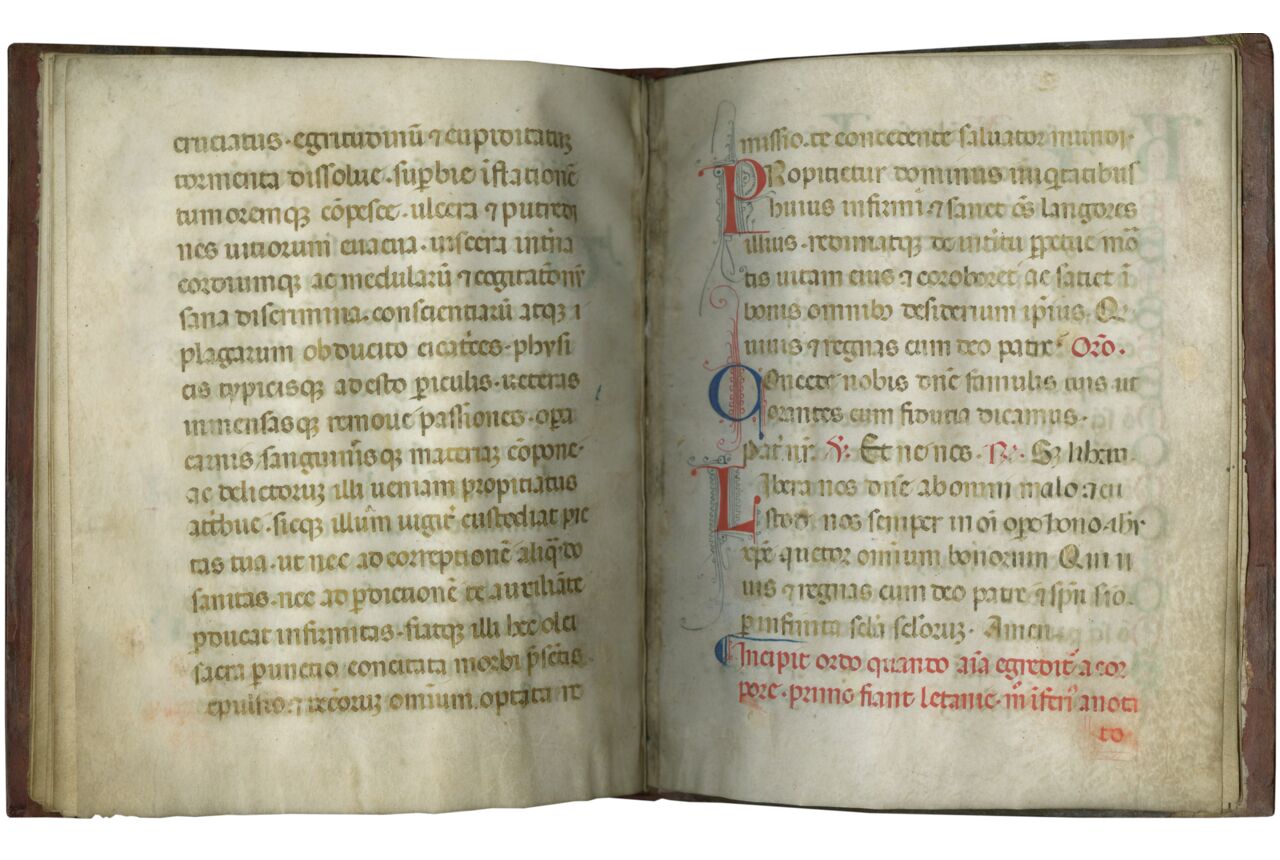 cruciatus · egritudinū ⁊ cupiditatūꝫ
tormenta dissolue · suꝑbie īflationē
tumoremqꝫ cōpesce · ulcera ⁊ putredi
nes uitiorum euacua · uiscera intīna
cordiumqꝫ ac medularū ⁊ cogitatōnū
sana discrimina · conscientiarū atqꝫ
plagarum obducito cicatͥces · physi
cis typicisqꝫ adesto ꝑiculis · ueteras
inmensasqꝫ remoue passiones · oꝑa
carnis sanguinisqꝫ materiaꝫ cōpone ·
ac delictoruꝫ illi ueniam propitiatus
attͥbue · sicqꝫ illum iugit̄ custodiat pie
tas tua · ut nec ad correptionē aliqͣdo
sanitas · nec ad ꝑdictionē te auxiliāte
ꝑducat infirmitas · fiatqꝫ illi hec olei
sacra ꝑunctio concitata morbi p̄sētis
epulsio · ⁊ ꝑctōruꝫ omium optata re
17
missio · te concedente saluator mundi ·
PRopitietur dominus iniqͥtatibus
huius infirmi · ⁊ sanet oēs langores
illius · redimatqꝫ de intītu ꝑpetue mō
tis uitam eius ⁊ coroboret ac saciet ī
bonis omnibꝰ desiderium ip̄ius · Q͛
uiuis ⁊ regnas cum deo patre · Orō ·
COncede nobis dn̄e famulis tuis ut
orantes cum fiducia dicamus ·
pat̄ nr̄ · ℣ · Et ne nos · ℟ · Sꝫ libera
LIbera nos dn̄e ab omni malo · ⁊ cu
stodi nos semper in oī oꝑe bono · ihū
xp̄e · auctor omīum bonorum Qui ui
uis ⁊ regnas cum deo patre ⁊ sp̄u sc̄o ·
ꝑ infinita sc̄la sc̄loruꝫ · Amen ·
Incipit ordo quando aīa egredit̄ a cor
pore · primo fiant letanie · m̄ īferi anoti
to